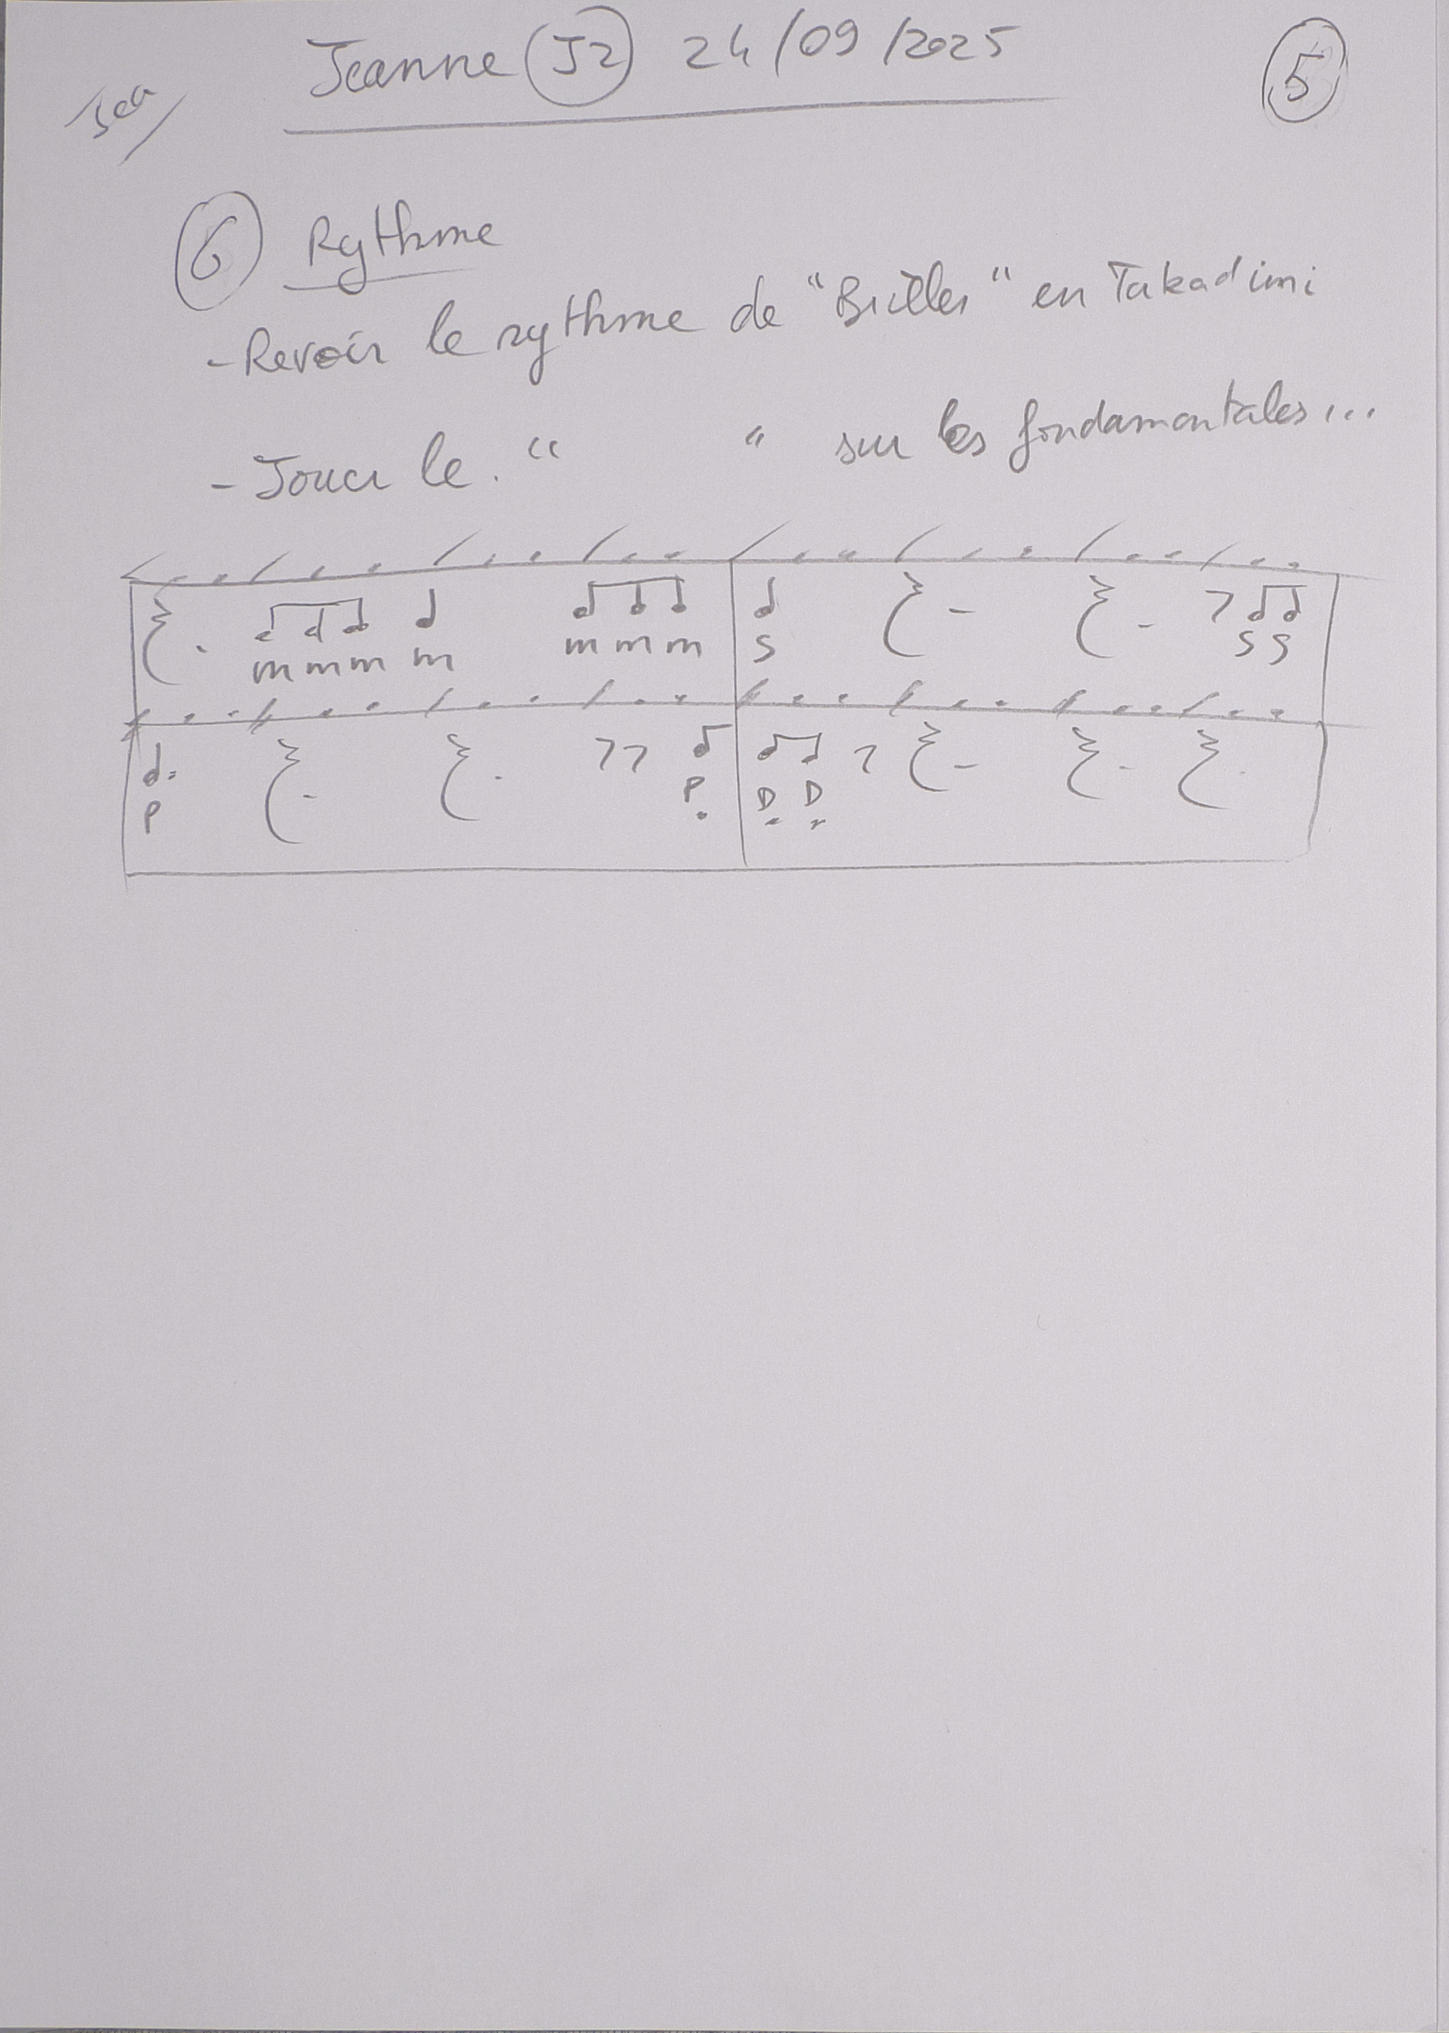 Jeanne (J2) 24/09/2025
5
Jea
6 Rythme
- Revoir le rythme de "Briller" en Takadimi
- Jouer le. " " sur les fondamentales...
m m m m m m m S S S
P P D D